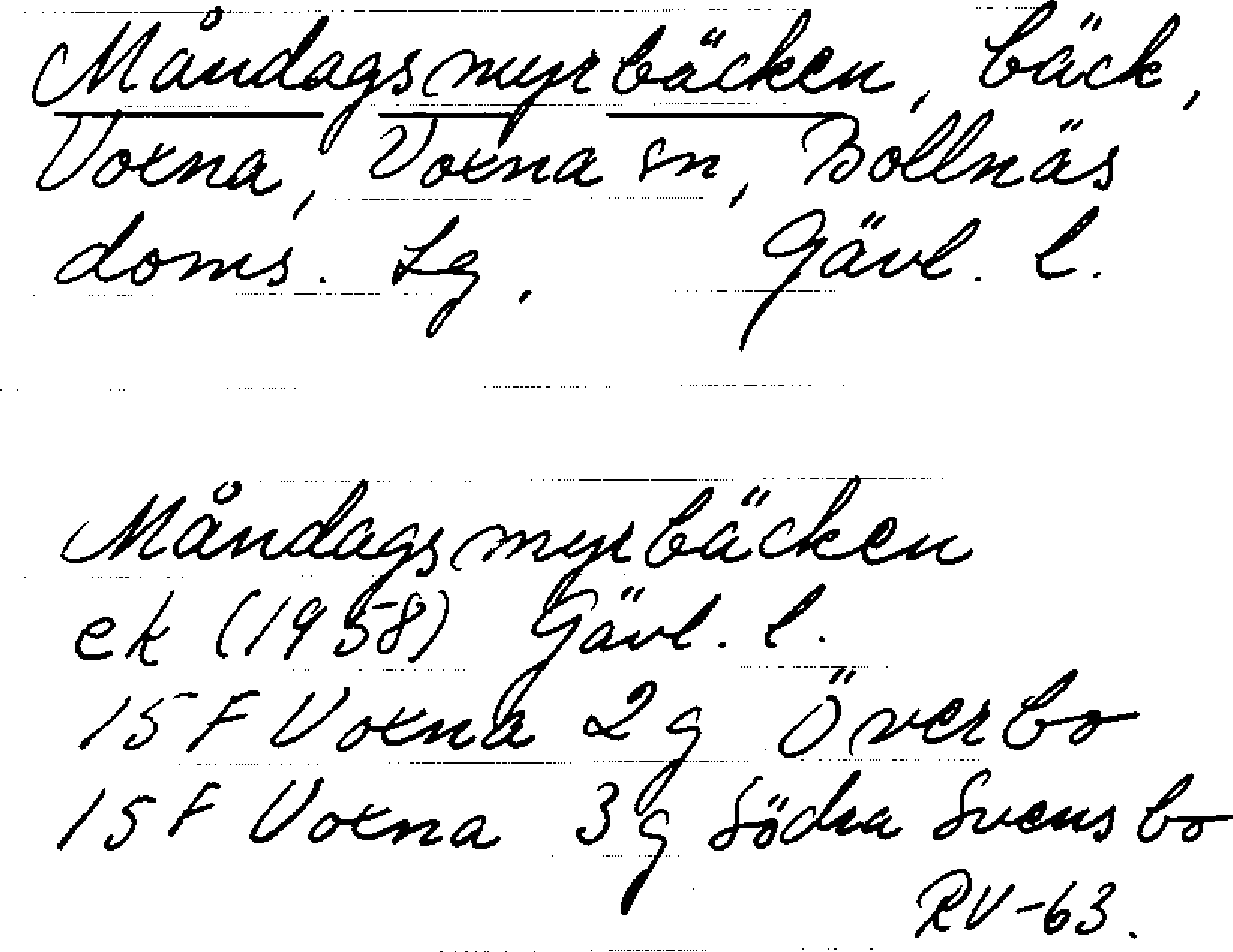 Måndagsmyrbäcken, bäck,
Voxna, Voxna sn, Bollnäs
doms. Lg. Gävl. l.
Måndagsmyrbäcken
ek (1958) Gävl. l.
15F Voxna 2g Överbo
15F Voxna 3g Södra Svensbo
RV-63.